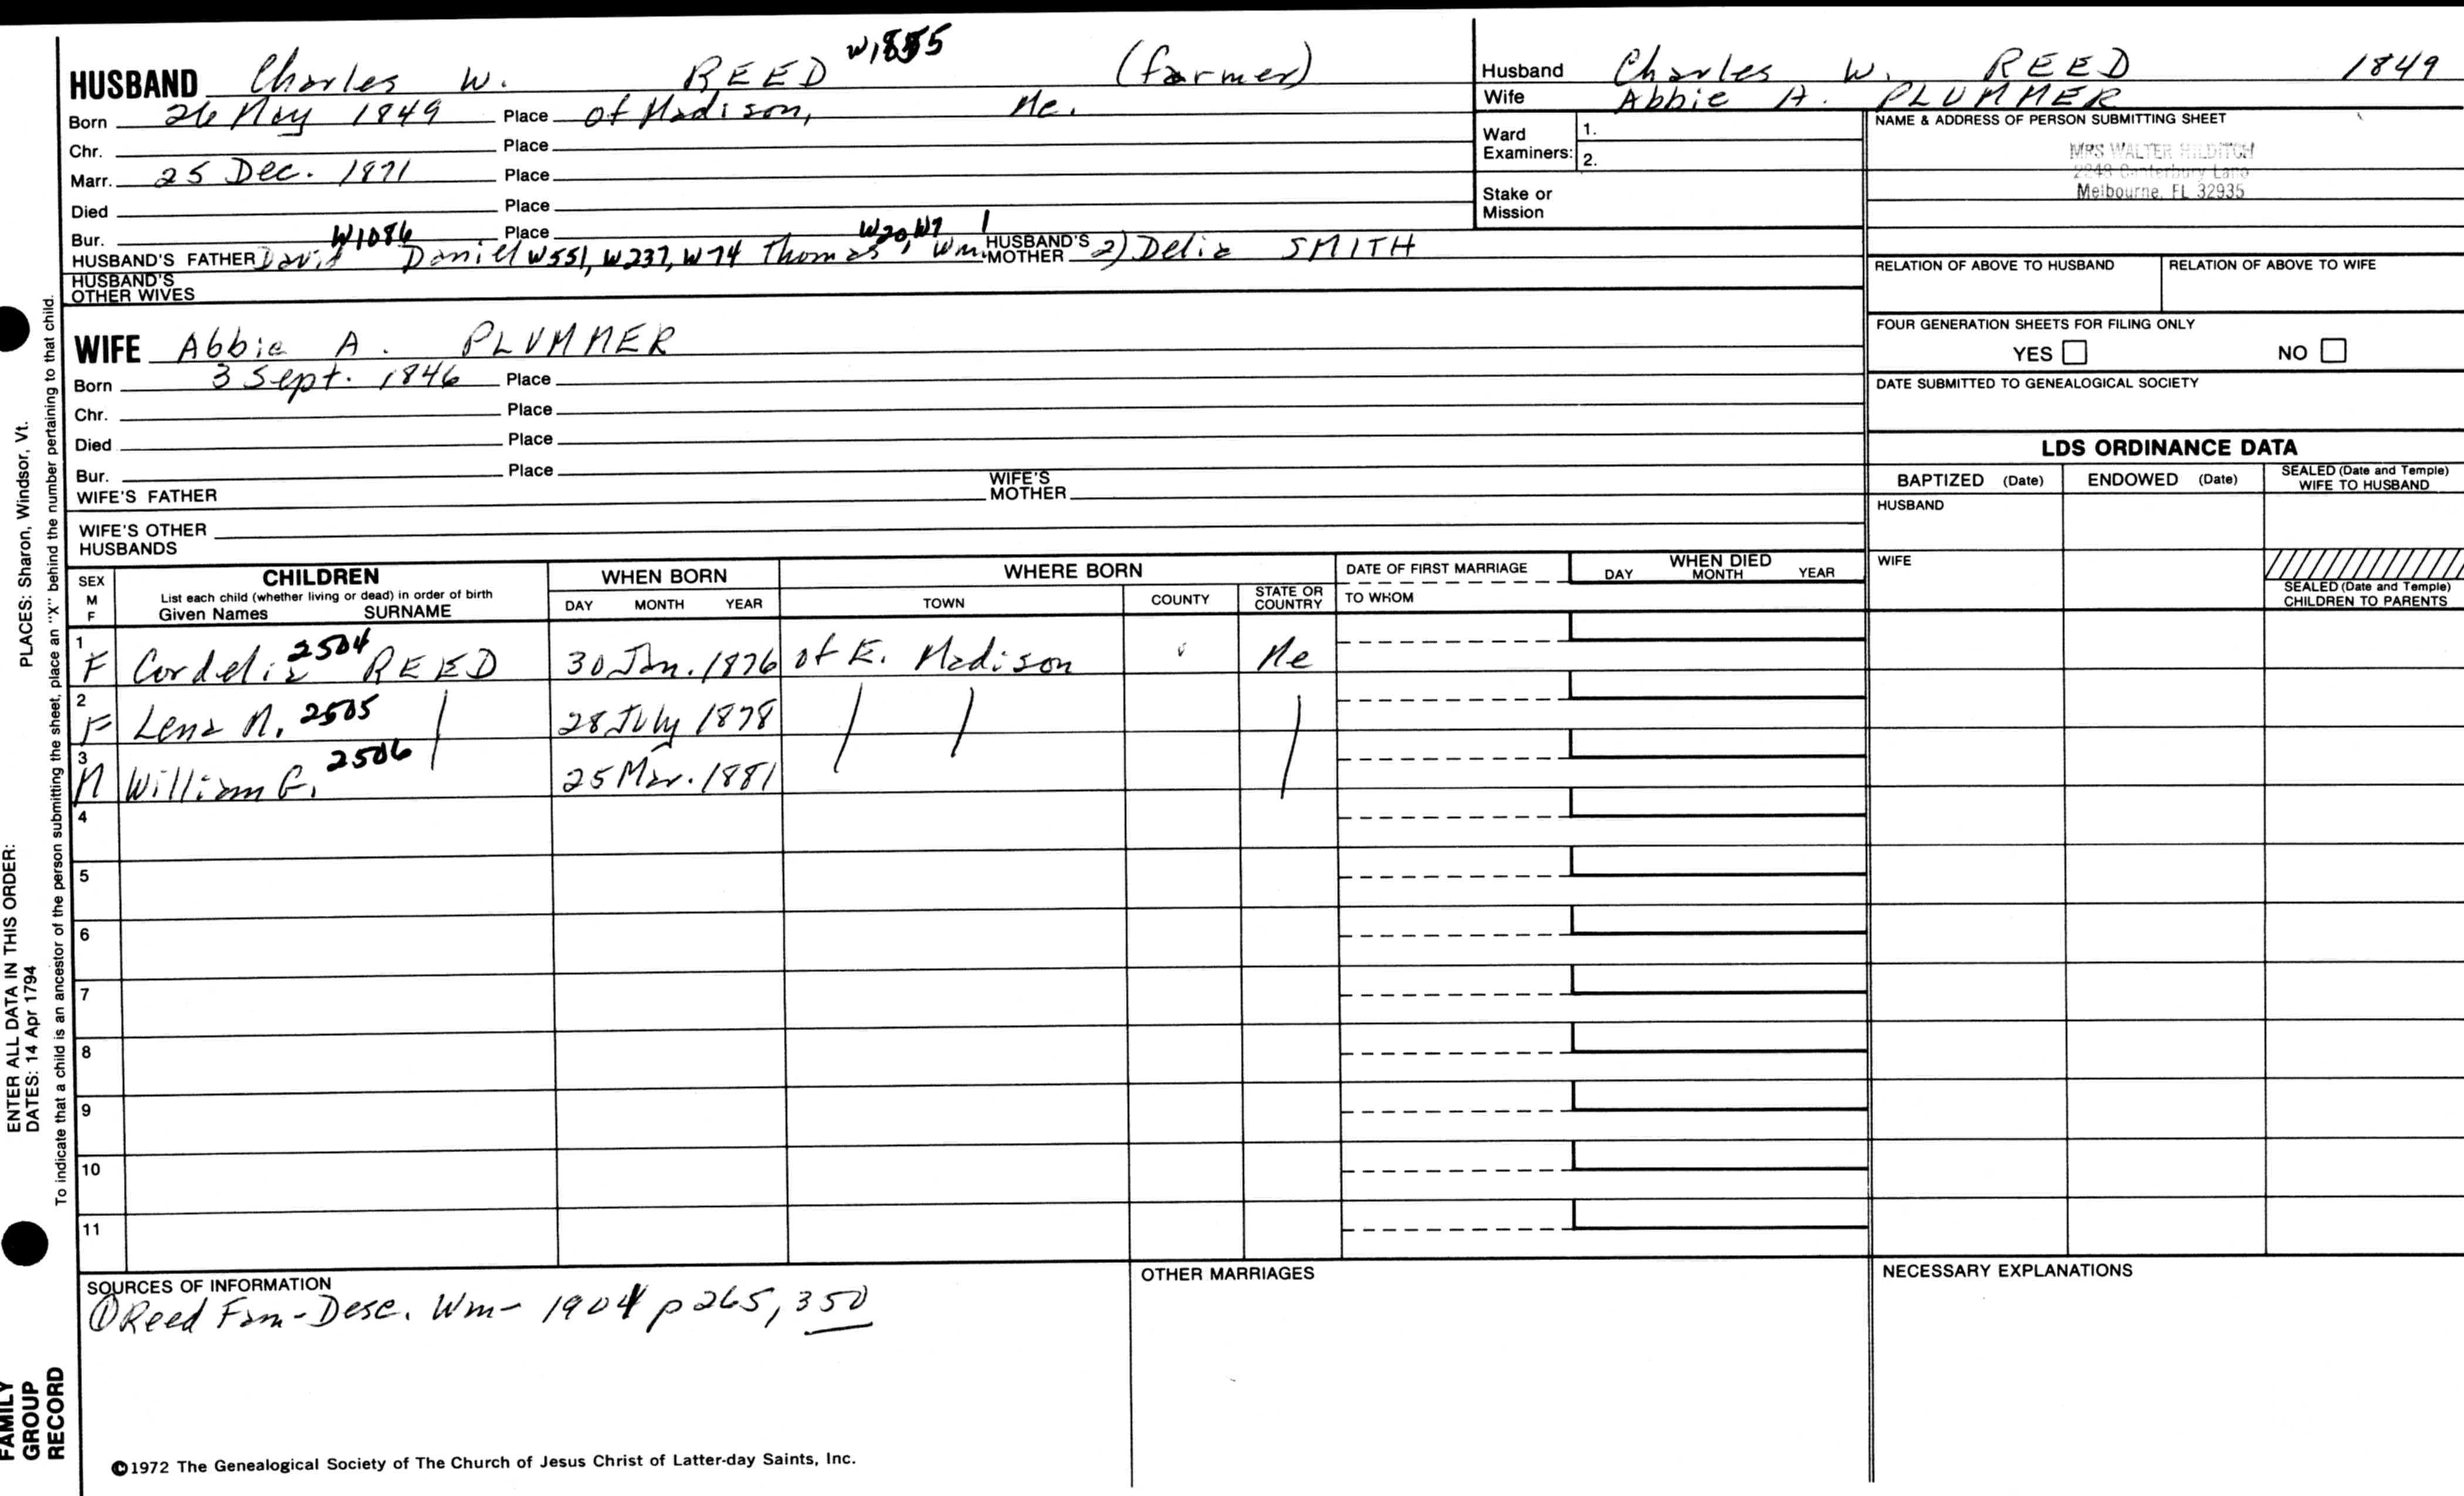 HUSBAND Charles W. REED W1855 (farmer)
Born 26 May 1849 Place of Madison, Me.
Chr. Place
Marr. 25 Dec. 1871 Place
Died Place
Bur. Place
HUSBAND'S FATHER David W1086 Daniel W551, W237, W74 Thomas W20, W7, Wm. 1 HUSBAND'S MOTHER 2) Delia SMITH
HUSBAND'S OTHER WIVES
WIFE Abbie A. PLUMMER
Born 3 Sept. 1846 Place
Chr. Place
Died Place
Bur. Place
WIFE'S FATHER WIFE'S MOTHER
WIFE'S OTHER HUSBANDS
Husband Charles W. REED 1849
Wife Abbie A. PLUMMER
Ward Examiners: 1.
2.
Stake or Mission
NAME & ADDRESS OF PERSON SUBMITTING SHEET
MRS WALTER HILDITCH
2249 Canterbury Lane
Melbourne, FL 32935
RELATION OF ABOVE TO HUSBAND RELATION OF ABOVE TO WIFE
FOUR GENERATION SHEETS FOR FILING ONLY
YES NO
DATE SUBMITTED TO GENEALOGICAL SOCIETY
LDS ORDINANCE DATA
BAPTIZED (Date) ENDOWED (Date) SEALED (Date and Temple) WIFE TO HUSBAND
HUSBAND
WIFE
SEALED (Date and Temple) CHILDREN TO PARENTS
SEX M F CHILDREN List each child (whether living or dead) in order of birth Given Names SURNAME WHEN BORN DAY MONTH YEAR WHERE BORN TOWN COUNTY STATE OR COUNTRY DATE OF FIRST MARRIAGE TO WHOM WHEN DIED DAY MONTH YEAR
1 F Cordelia 2504 REED 30 Jan. 1876 of E. Madison Me
2 F Lena M. 2505 28 July 1878
3 M William G. 2506 25 Mar. 1881
4
5
6
7
8
9
10
11
SOURCES OF INFORMATION
① Reed Fam - Desc. Wm - 1904 p 265, 350
OTHER MARRIAGES
NECESSARY EXPLANATIONS
©1972 The Genealogical Society of The Church of Jesus Christ of Latter-day Saints, Inc.
FAMILY GROUP RECORD
ENTER ALL DATA IN THIS ORDER:
DATES: 14 Apr 1794
PLACES: Sharon, Windsor, Vt.
To indicate that a child is an ancestor of the person submitting the sheet, place an "X" behind the number pertaining to that child.